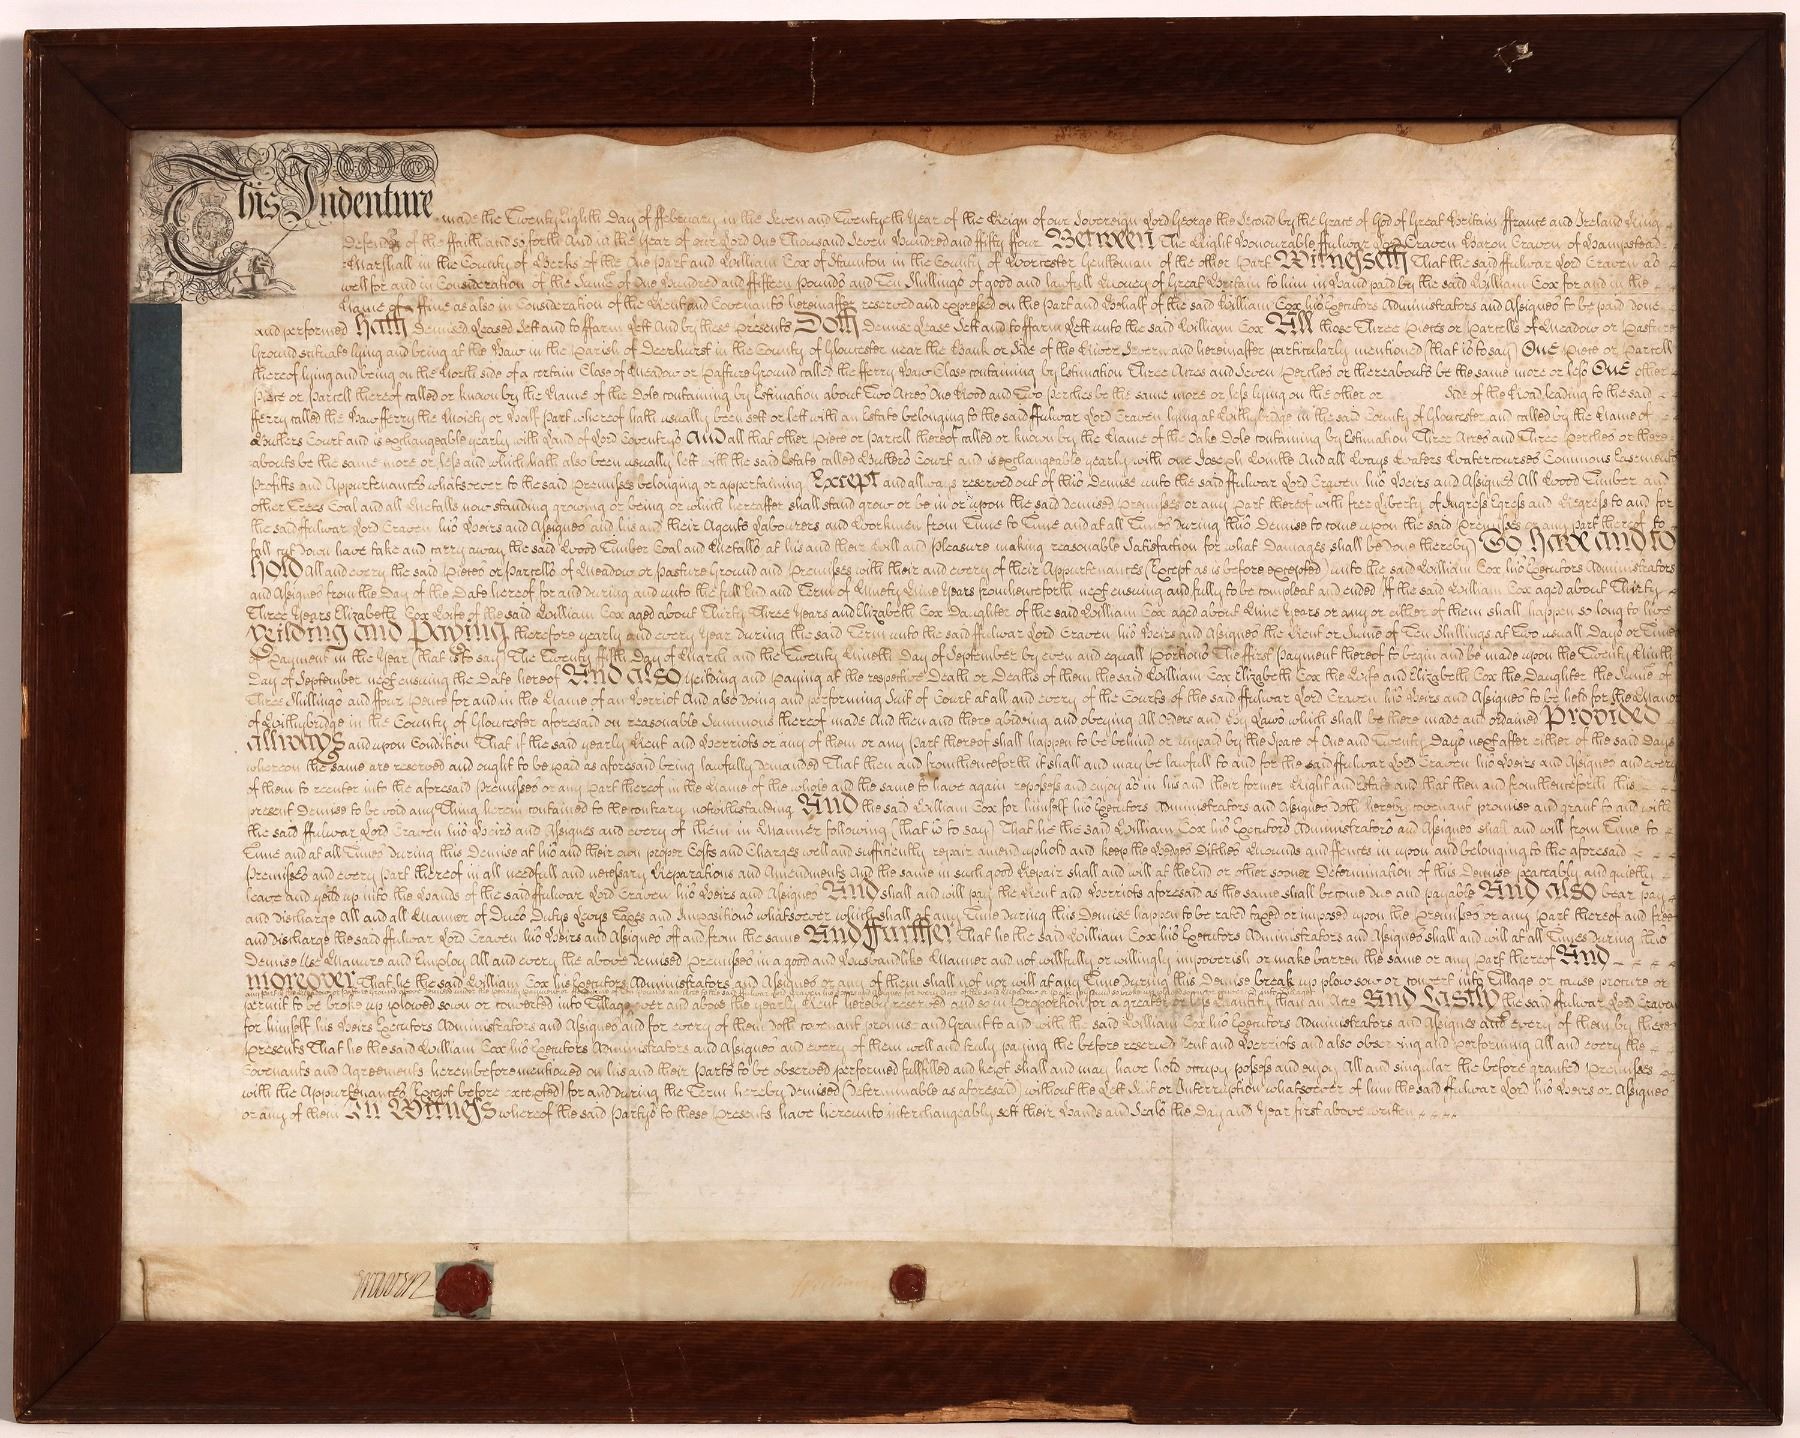 This Indenture made the Twenty Eighth Day of ffebruary in the Seven and Twentyeth Year of the Reign of our Sovereign Lord George the Second by the Grace of God of Great Britain ffrance and Ireland King
Defender of the ffaith and so forth And in the Year of our Lord One Thousand Seven Hundred and ffifty ffour Between The Right Honourable ffulwar Lord Craven Baron Craven of Hampstead
Marshall in the County of Berks of the One Part and William Cox of Staunton in the County of Worcester Gentleman of the other Part Witnesseth That the said ffulwar Lord Craven as
well for and in Consideration of the Sume of One Hundred and ffifteen Pounds and Ten Shillings of good and lawfull Money of Great Britain to him in Hand paid by the said William Cox for and in the
Name of a ffine as also in Consideration of the Rent and Covenants hereinafter reserved and expressed on the part and Behalf of the said William Cox his Executors Administrators and Assignes to be paid done
and performed Hath Demised Leased Sett and to ffarm Lett And by these Presents Doth Demise Lease Sett and to ffarm Lett unto the said William Cox All those Three Pieces or Parcells of Meadow or Pasture
Ground scituate lying and being at the Haw in the Parish of Deerhurst in the County of Gloucester near the Bank or Side of the River Severn and hereinafter particularly mentioned (that is to say) One Piece or Parcell
thereof lying and being on the North side of a certain Close of Meadow or Pasture Ground called the fferry Haw Close containing by Estimation Three Acres and Seven Perches or thereabouts be the same more or less One other
Piece or Parcell thereof called or known by the Name of the Dole containing by Estimation about Two Acres One Rood and Two Perches be the same more or less lying on the other or side of the Road leading to the said
fferry called the Haw fferry the Moiety or Half Part whereof hath usually been sett or lett with an Estate belonging to the said ffulwar Lord Craven lying at Withybridge in the said County of Gloucester and called by the Name of
Butlers Court and is exchangeable yearly with Land of Lord Coventrys And all that other Piece or Parcell thereof called or known by the Name of the Dole containing by Estimation Three Acres and Three Perches or there
abouts be the same more or less and which hath also been usually lett with the said Estate called Butlers Court and is exchangeable yearly with one Joseph And all Ways Waters Watercourses Commons Easements
Profitts and Appurtenances whatsoever to the said Premises belonging or appertaining Except and allways reserved out of this Demise unto the said ffulwar Lord Craven his Heirs and Assignes All Wood Timber and
other Trees Coal and all Mettalls now standing growing or being or which hereafter shall stand grow or be in or upon the said demised Premises or any Part thereof with free Liberty of Ingress Egress and Regress to and for
the said ffulwar Lord Craven his Heirs and Assignes and his and their Agents Labourers and Workmen from Time to Time and at all Times during this Demise to come upon the said Premises or any part thereof to
fall cut down have take and carry away the said Wood Timber Coal and Mettalls at his and their Will and Pleasure making reasonable Satisfaction for what Damages shall be done thereby) To have and to
hold All and every the said Pieces or Parcells of Meadow or Pasture Ground and Premises with their and every of their Appurtenances (Except as is before excepted) unto the said William Cox his Executors Administrators
and Assignes from the Day of the Date hereof for and during and unto the full End and Term of Ninety Nine Years fromhenceforth next ensuing and fully to be compleat and ended If the said William Cox aged about Thirty
Three Years Elizabeth Cox Wife of the said William Cox aged about Thirty Three Years and Elizabeth Cox Daughter of the said William Cox aged about Nine Years or any or either of them shall happen so long to live
Yeilding and Paying therefore yearly and every Year during the said Term unto the said ffulwar Lord Craven his Heirs and Assignes the Rent or Sume of Ten Shillings at Two usuall Days or Times
of Payment in the Year (that is to say) The Twenty ffifth Day of March and the Twenty Nineth Day of September by even and equall Portions The first Payment thereof to begin and be made upon the Twenty Ninth
Day of September next ensuing the Date hereof And also yeilding and Paying at the respective Death or Deaths of them the said William Cox Elizabeth Cox the Wife and Elizabeth Cox the Daughter the Sume of
Three Shillings and ffour Pence for and in the Name of an Herriot And also doing and performing Suit of Court at all and every of the Courts of the said ffulwar Lord Craven his Heirs and Assignes to be held for the Manor
of Withybridge in the County of Gloucester aforesaid on reasonable Summons thereof made And then and there abiding and obeying All Orders and By Laws which shall be there made and ordained Provided
allways and upon Condition That if the said yearly Rent and Herriots or any of them or any Part thereof shall happen to be behind or unpaid by the Space of One and Twenty Days next after either of the said Days
whereon the same are reserved and ought to be paid as aforesaid being lawfully demanded That then and fromthenceforth it shall and may be lawfull to and for the said ffulwar Lord Craven his Heirs and Assignes and every
of them to reenter into the aforesaid Premises or any Part thereof in the Name of the whole and the same to have again repossess and enjoy as in his and their former Right and Estate and that then and fromthenceforth this
present Demise to be void any Thing herein contained to the contrary notwithstanding And the said William Cox for himself his Executors Administrators and Assignes doth hereby covenant promise and grant to and with
the said ffulwar Lord Craven his Heirs and Assignes and every of them in Manner following (that is to say) That he the said William Cox his Executors Administrators and Assignes shall and will from Time to
Time and at all Times during this Demise at his and their own proper Costs and Charges well and sufficiently repair amend uphold and keep the Hedges Ditches Mounds and ffences in upon and belonging to the aforesaid
Premises and every Part thereof in all needfull and necessary Reparations and Amendments And the same in such good Repair shall and will at the End or other sooner Determination of this Demise peaceably and quietly
leave and yeild up into the Hands of the said ffulwar Lord Craven his Heirs and Assignes And shall and will pay the Rent and Herriots aforesaid as the same shall become due and payable And also bear pay
and discharge All and all Manner of Dues Dutys Levys Taxes and Impositions whatsoever which shall at any Time during this Demise happen to be rated taxed or imposed upon the Premises or any Part thereof and free
and discharge the said ffulwar Lord Craven his Heirs and Assignes off and from the same And ffurther That he the said William Cox his Executors Administrators and Assignes shall and will at all Times during this
Demise Use Manure and Employ All and every the above demised Premises in a good and Husbandlike Manner and not willfully or willingly impoverish or make barren the same or any Part thereof And
moreover That he the said William Cox his Executors Administrators and Assignes or any of them shall not nor will at any Time during this Demise break up plow sow or convert into Tillage or cause procure or
permit to be broke up plowed sown or converted into Tillage over and above the yearly Rent hereby reserved and so in Proportion for a greater or less Quantity than an Acre And Lastly the said ffulwar Lord Craven
for himself his Heirs Executors Administrators and Assignes and for every of them doth covenant promise and Grant to and with the said William Cox his Executors Administrators and Assignes and every of them by these
Presents That he the said William Cox his Executors Administrators and Assignes and every of them well and truly paying the before reserved Rent and Herriots and also observing and performing All and every the
Covenants and Agreements hereinbefore mentioned on his and their Parts to be observed performed fullfilled and kept shall and may have hold occupy possess and enjoy All and singular the before granted Premises
with the Appurtenances (Except before excepted) for and during the Term hereby demised (determinable as aforesaid) without the Lett Suit or Interruption whatsoever of him the said ffulwar Lord his Heirs or Assignes
or any of them In Witness whereof the said Partys to these Presents have hereunto interchangeably sett their Hands and Seals the Day and Year first above written
Craven